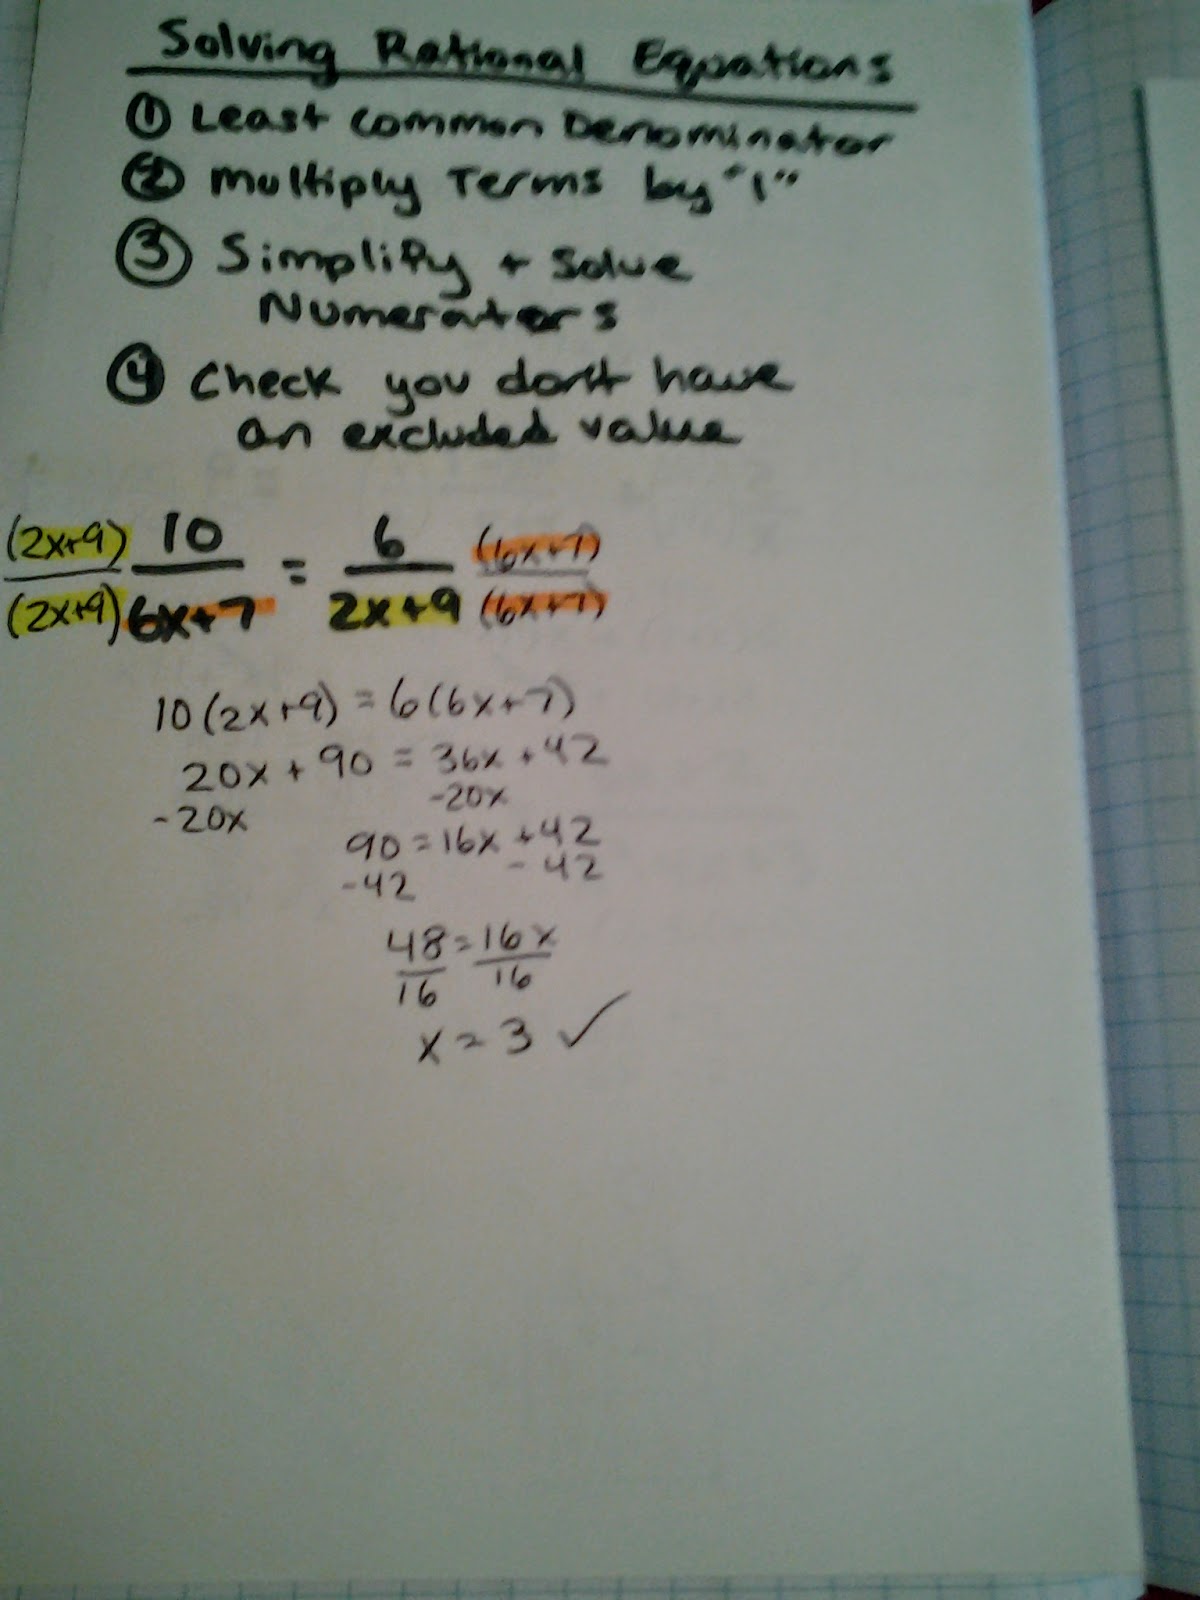 Solving Rational Equations
① Least Common Denominator
② Multiply Terms by "1"
③ Simplify + Solve
Numerators
④ Check you don't have
an excluded value
(2x+9) 10 = 6 (6x+7)
(2x+9) 6x+7 2x+9 (6x+7)
10(2x+9) = 6(6x+7)
20x + 90 = 36x + 42
-20x -20x
90 = 16x + 42
-42 - 42
48 = 16x
16 16
x = 3 ✓